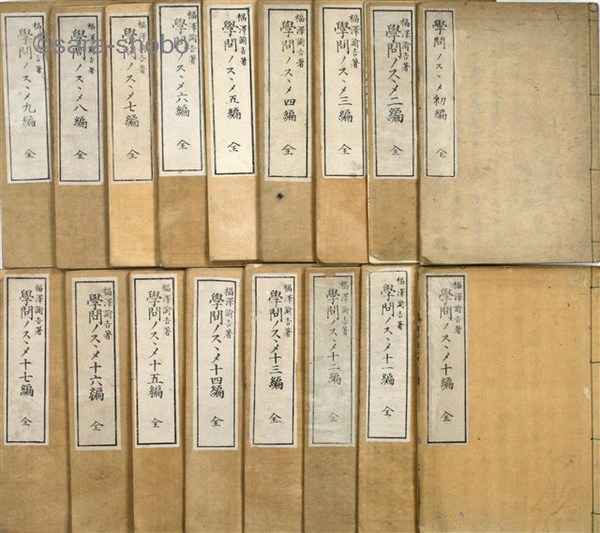 ©sara-shobo
學問ノスヽメ初編 全
福澤諭吉著
學問ノスヽメ二編 全
福澤諭吉著
學問ノスヽメ三編 全
福澤諭吉著
學問ノスヽメ四編 全
福澤諭吉著
學問ノスヽメ五編 全
福澤諭吉著
學問ノスヽメ六編 全
福澤諭吉著
學問ノスヽメ七編 全
福澤諭吉著
學問ノスヽメ八編 全
福澤諭吉著
學問ノスヽメ九編 全
福澤諭吉著
學問ノスヽメ十編 全
福澤諭吉著
學問ノスヽメ十一編 全
福澤諭吉著
學問ノスヽメ十二編 全
福澤諭吉著
學問ノスヽメ十三編 全
福澤諭吉著
學問ノスヽメ十四編 全
福澤諭吉著
學問ノスヽメ十五編 全
福澤諭吉著
學問ノスヽメ十六編 全
福澤諭吉著
學問ノスヽメ十七編 全